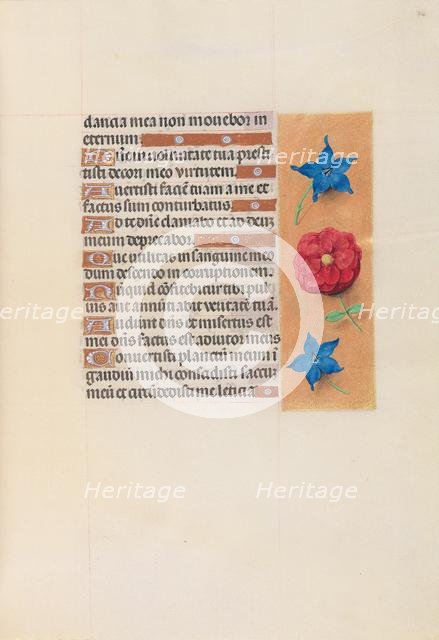 dancia mea non movebor in
eternum
Dñe in voluntate tua presti
tisti decori meo virtutem
Avertisti faciē tuam a me et
factus sum conturbatus
Ad te dñe clamabo et ad deū
meum deprecabor
Que utilitas in sanguine meo
dum descendo in corruptionem
Nunquid cōfitebitur tibi pul
vis aut annūtiabit veritatē tuā
Audivit dñs et misertus est
mei dñs factus est adiutor meus
Convertisti planctū meum ī
gaudiū michi conscidisti saccum
meū et circūdedisti me leticia
Heritage
Heritage
Heritage
Heritage
Heritage
Heritage